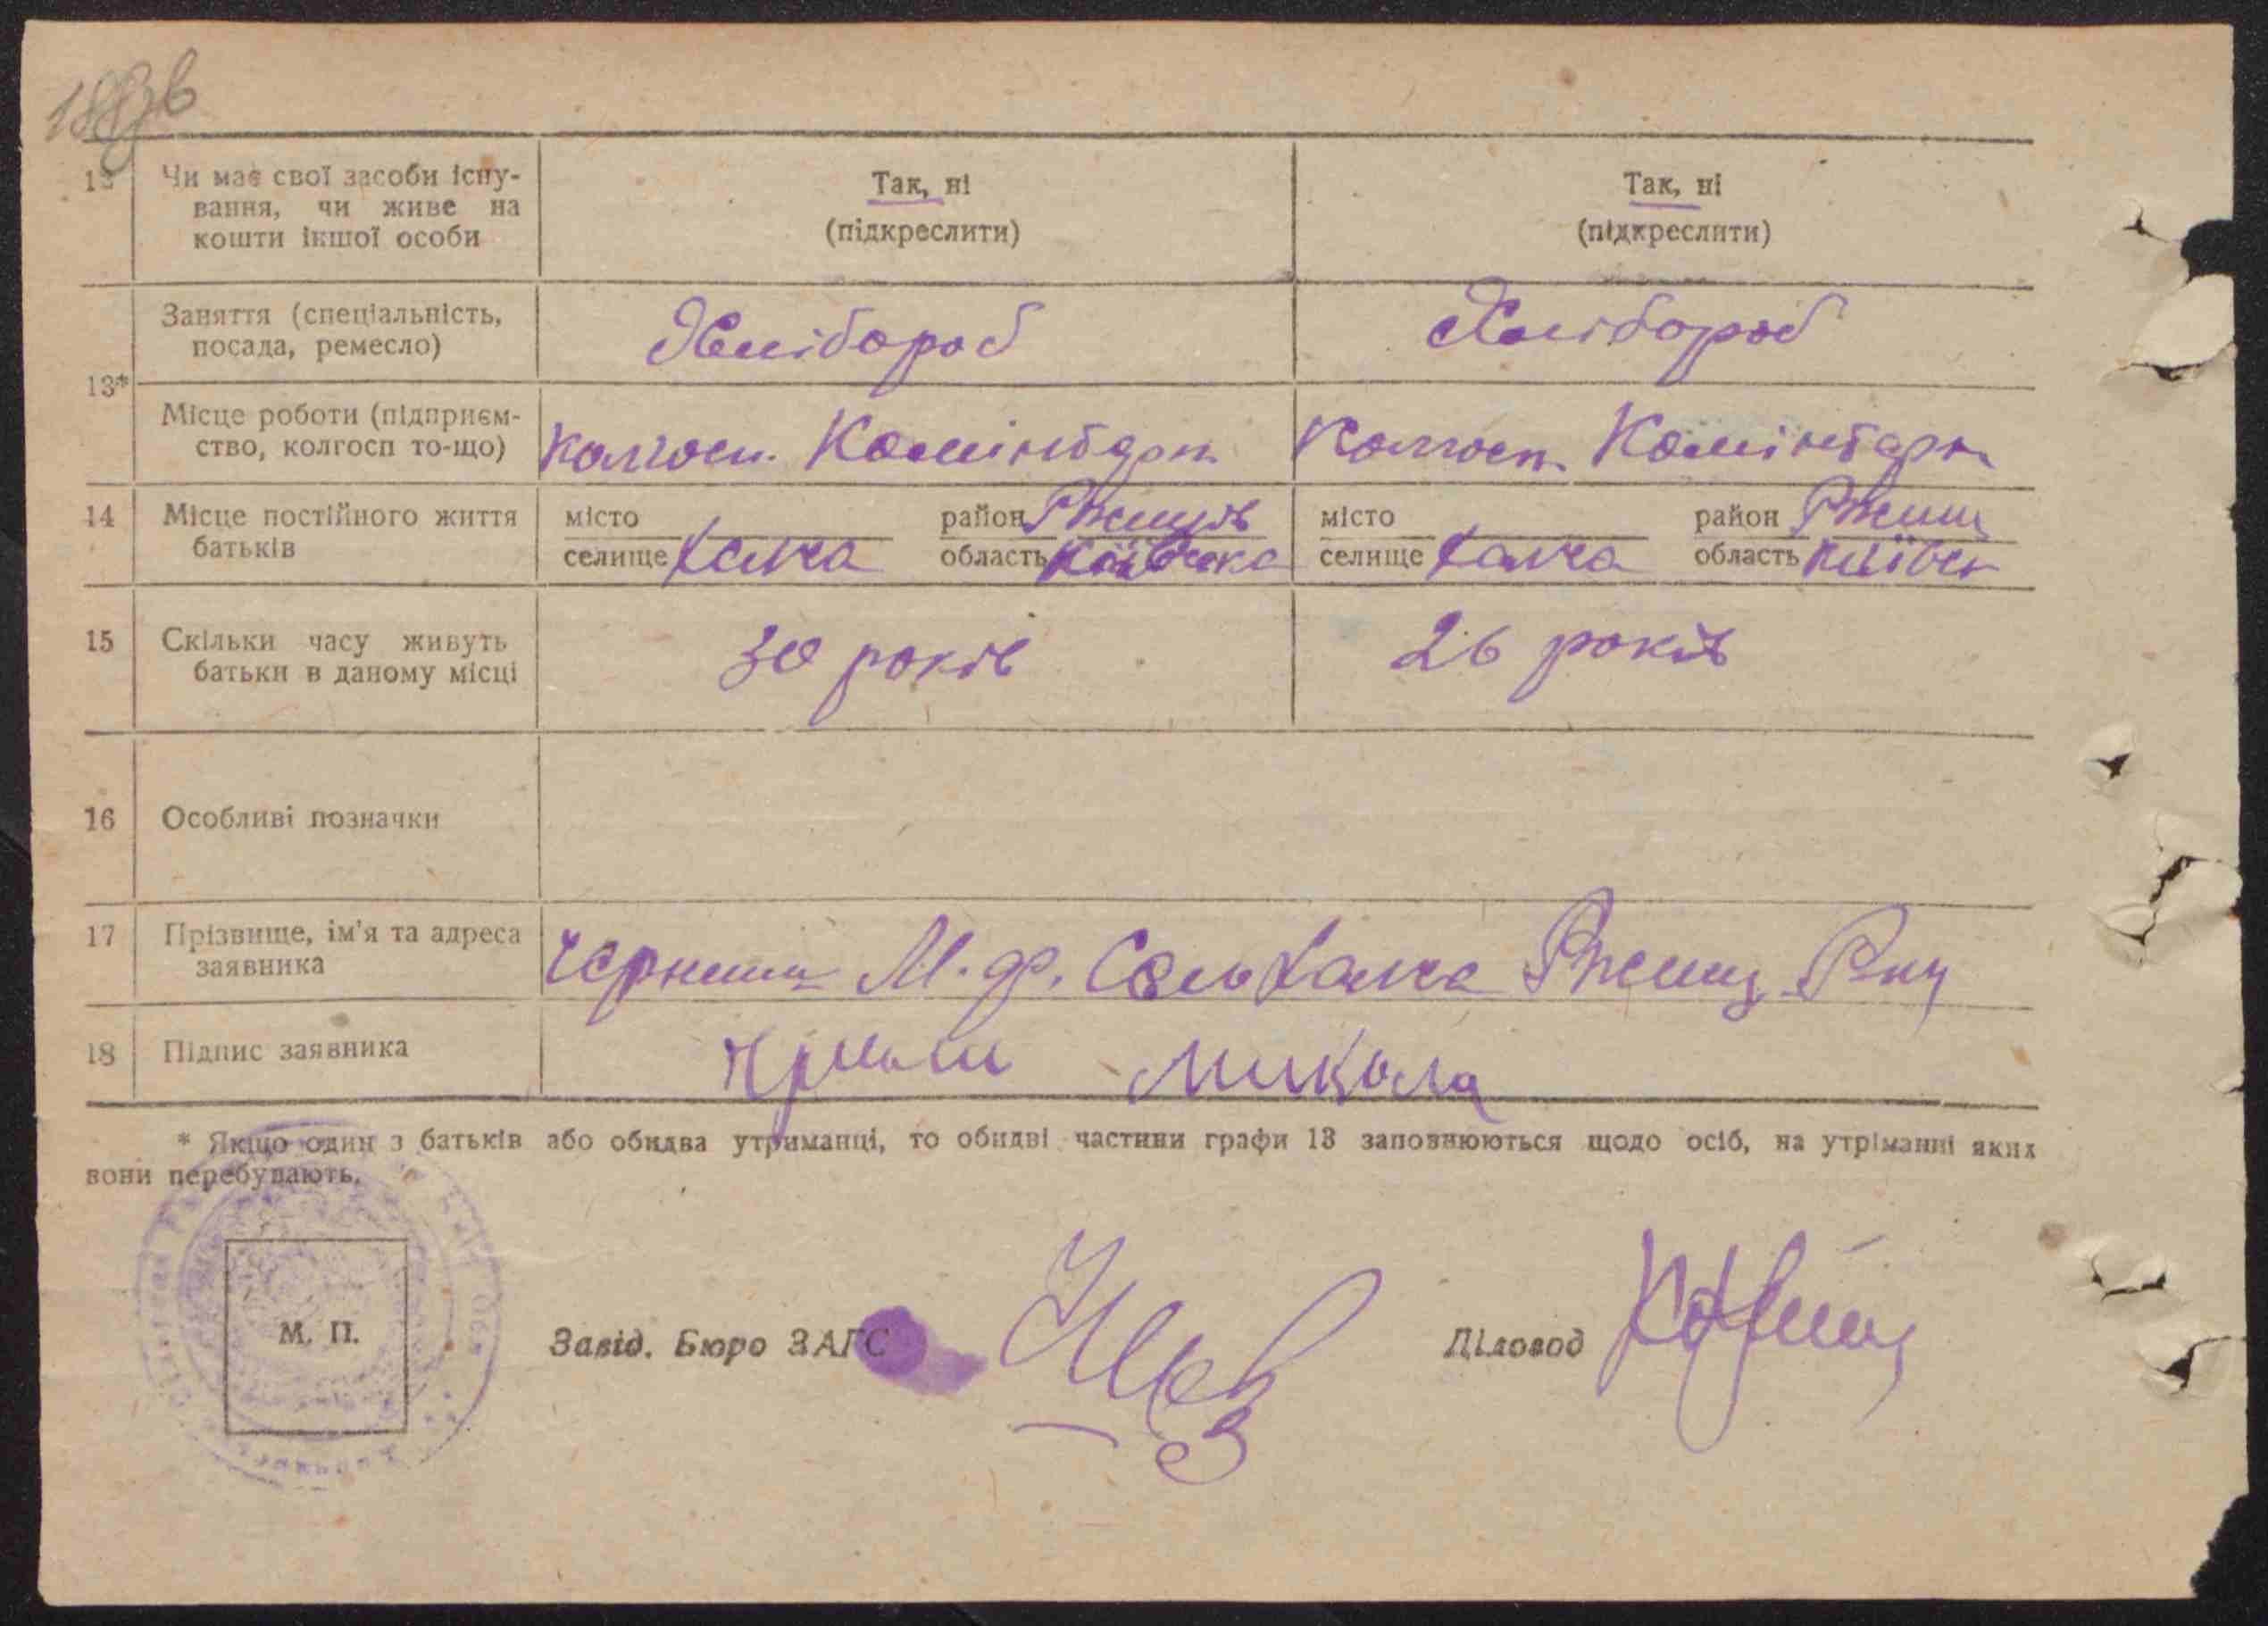 12 Чи має свої засоби існу- Так, ні Так, ні
вання, чи живе на (підкреслити) (підкреслити)
кошти іншої особи
Заняття (спеціальність, Хлібороб Хлібороб
посада, ремесло)
13*
Місце роботи (підприєм- Колгосп. Комінтерн Колгосп. Комінтерн
ство, колгосп то-що)
14 Місце постійного життя місто район Ржищів місто район Ржищ
батьків селище Халча область Київська селище Халча область Київськ
15 Скільки часу живуть 30 років 26 років
батьки в даному місці
16 Особливі позначки
17 Прізвище, ім'я та адреса Черниш М. Ф. Село Халча Ржищ. Рну
заявника
18 Підпис заявника Микола
* Якщо один з батьків або обидва утриманці, то обидві частини графи 13 заповнюються щодо осіб, на утріманні яких
вони перебувають.
М. П. Завід. Бюро ЗАГС Діловод